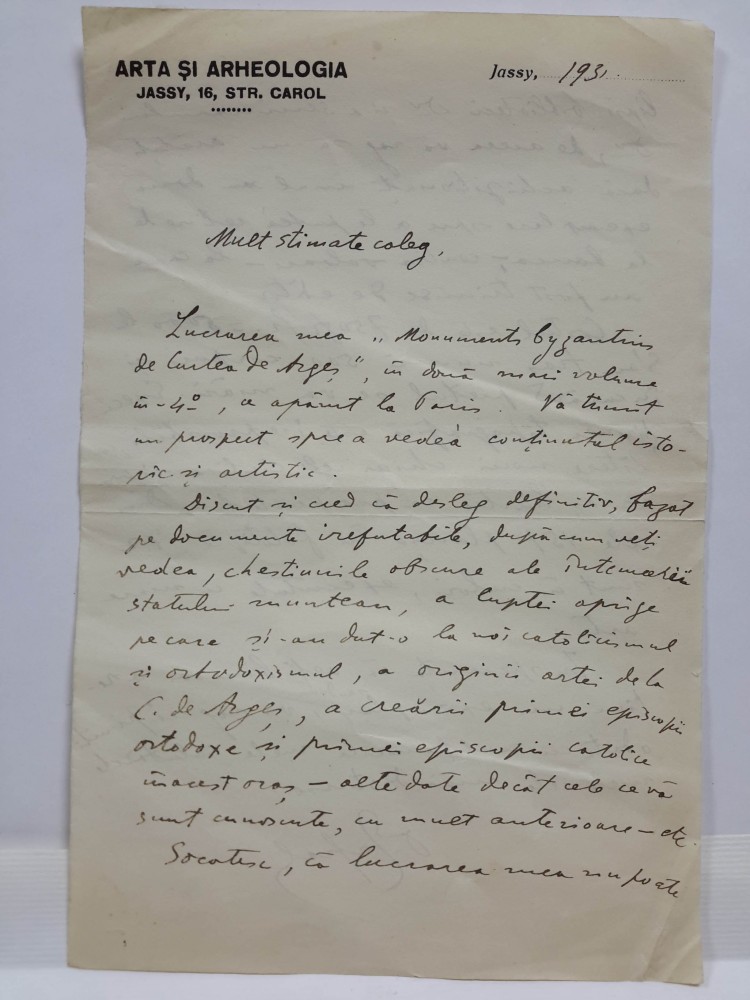 ARTA ȘI ARHEOLOGIA
JASSY, 16, STR. CAROL
Jassy, 1931.
Mult stimate coleg,
Lucrarea mea „Monuments byzantins
de Curtea de Argeș”, în două mari volume
in-4º, a apărut la Paris. Vă trimit
un prospect spre a vedea conținutul isto-
ric și artistic.
Discut și cred că desleg definitiv, bazat
pe documente irefutabile, după cum veți
vedea, chestiunile obscure ale întemeierii
statului muntean, a luptei aprige
pe care și-au dat-o la noi catolicismul
și ortodoxismul, a originii artei de la
C. de Argeș, a creării primei episcopii
ortodoxe și primei episcopii catolice
în acest oraș – alte date decât cele ce vă
sunt cunoscute, cu mult anterioare – etc.
Socotesc, că lucrarea mea nu poate